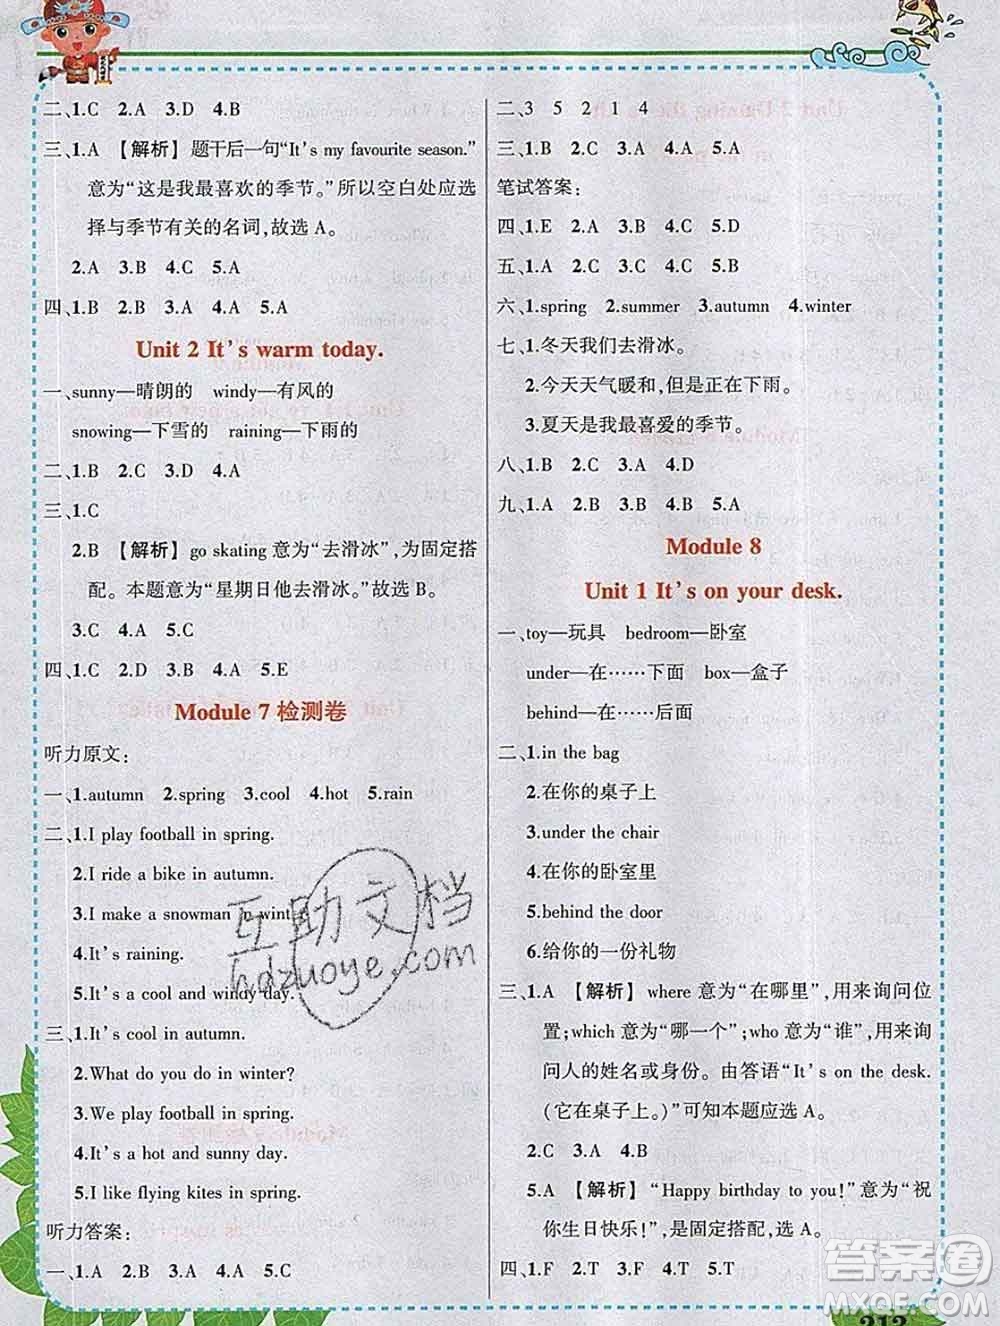 二、1.C 2.A 3.A 4.B
三、1.A 【解析】题干后一句“It's my favourite season.”
意为“这是我最喜欢的季节。”所以空白处应选
择与季节有关的名词,故选 A。
2.A 3.B 4.C 5.A
四、1.B 2.B 3.A 4.A 5.A
Unit 2 It's warm today.
一、sunny—晴朗的 windy—有风的
snowing—下雪的 raining—下雨的
二、1.B 2.C 3.B 4.A
三、1.C
2.B 【解析】go skating 意为“去滑冰”,为固定搭
配。本题意为“星期日他去滑冰。”故选 B。
3.C 4.A 5.C
四、1.C 2.D 3.B 4.A 5.E
Module 7 检测卷
听力原文:
一、1.autumn 2.spring 3.cool 4.hot 5.rain
二、1.I play football in spring.
2.I ride a bike in autumn.
3.I make a snowman in
4.It's raining.
5.It's a cool and windy day.
三、1.It's cool in autumn.
2.What do you do in winter?
3.We play football in spring.
4.It's a hot and sunny day.
5.I like flying kites in spring.
听力答案:
一、1.A 2.A 3.B 4.A 5.C
二、3 5 2 1 4
三、1.B 2.B 3.A 4.A 5.A
笔试答案:
四、1.E 2.A 3.B 4.C 5.D
五、1.A 2.C 3.A 4.B 5.C
六、1.spring 2.summer 3.autumn 4.winter
七、1.冬天我们去滑冰。
2.今天天气暖和,但是正在下雨。
3.夏天是我最喜爱的季节。
八、1.B 2.C 3.A 4.D
九、1.A 2.B 3.B 4.B 5.A
Module 8
Unit 1 It's on your desk.
一、toy—玩具 bedroom—卧室
under—在……下面 box—盒子
behind—在……后面
二、1.in the bag
2.在你的桌子上
3.under the chair
4.在你的卧室里
5.behind the door
6.给你的一份礼物
三、1.A 【解析】where 意为“在哪里”,用来询问位
置;which 意为“哪一个”;who 意为“谁”,用来询
问人的姓名或身份。由答语“It's on the desk.
(它在桌子上。)”可知本题应选 A。
2.C 3.A 4.A
5.A 【解析】“Happy birthday to you!”意为“祝
你生日快乐!”,是固定搭配,选 A。
四、1.F 2.T 3.F 4.T 5.T
互助文档
hdzuoye.com
答案圈
MXQE.COM
213